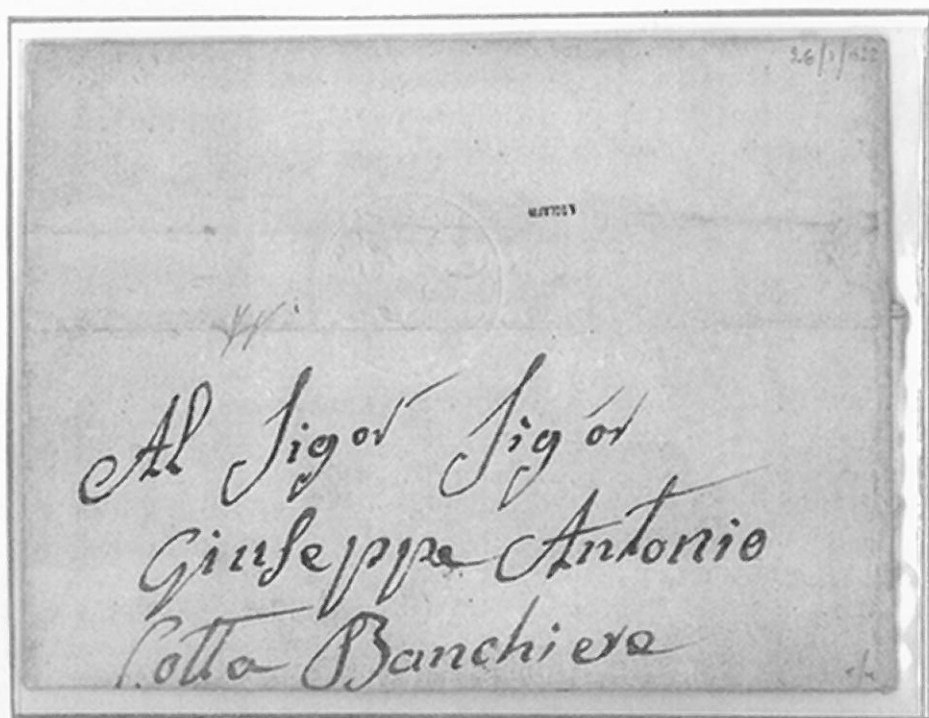 26/1/822
Al Sigor Sigor
Giuseppe Antonio
Cotta Banchiere